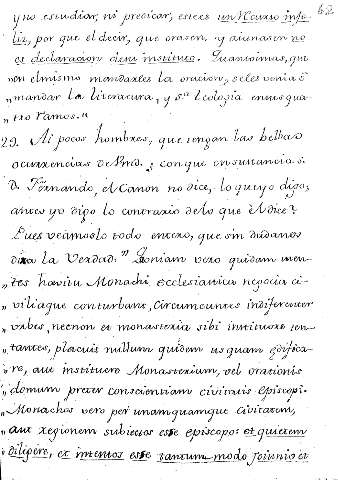 62
y no estudiar, ni predicar, este es un recurso infe-
liz, por que el decir, que orasen, y ayunasen no
es declaracion de su instituto. Quantisimas, que
en el mismo mandarles la oracion, se les venia à
„ mandar la literatura, y S.ta Teologia en sus qua-
„ tro ramos."
29. Ai pocos hombres, que tengan las bellas
ocurrencias de Vmd.; con que en sustancia S.
D. Fernando, el Canon no dice, lo que yo digo,
antes yo digo lo contrario de lo que él dice?
Pues veamoslo todo entero, que sin duda nos
dira la Verdad. "Quoniam vero quidam mon-
„ tes havitu Monachi Ecclesiastica negocia ci-
„ viliaque conturbant, circumeuntes indiferenter
„ urbes, necnon et monasteria sibi instituere ten-
„ tantes, placuit nullum quidem usquam ædifica-
„ re, aut instituere Monasterium, vel orationis
„ domum preter conscientiam civitatis episcopi.
„ Monachos vero per unamquamque civitatem,
„ aut regionem subiectos esse episcopo: et quietem
„ diligere, et intentos esse tantum modo jeiunio et